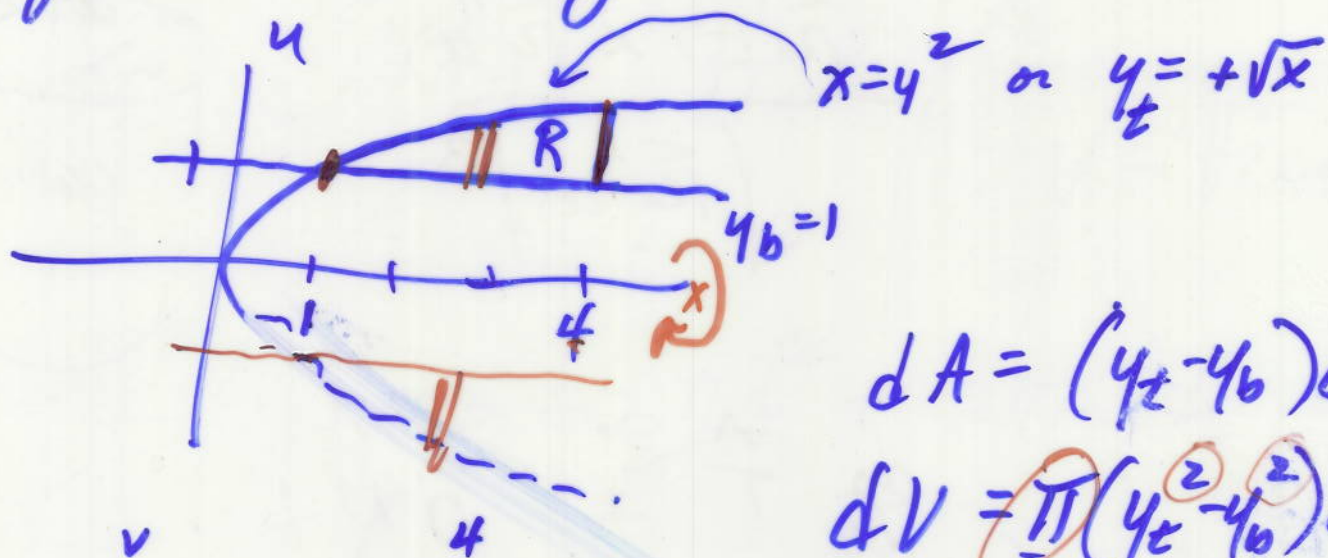 y
x=y² or y_t = +√x
R
y_b=1
x
-1
4
dA = (y_t - y_b)
dV = π(y_t² - y_b²)
4